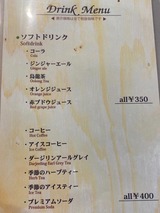 Drink Menu
★ソフトドリンク
Softdrink
・コーラ
Cola
・ジンジャーエール
Ginger ale
・烏龍茶
Oolong Tea
・オレンジジュース
Orange juice
・赤ブドウジュース
Red grape juice
all¥350
・コーヒー
Hot Coffee
・アイスコーヒー
Ice Coffee
・ダージリンアールグレイ
Darjeeling Earl Grey Tea
・季節のハーブティー
Herb Tea
・季節のアイスティー
Ice Tea
・プレミアムソーダ
Premium Soda
all¥400